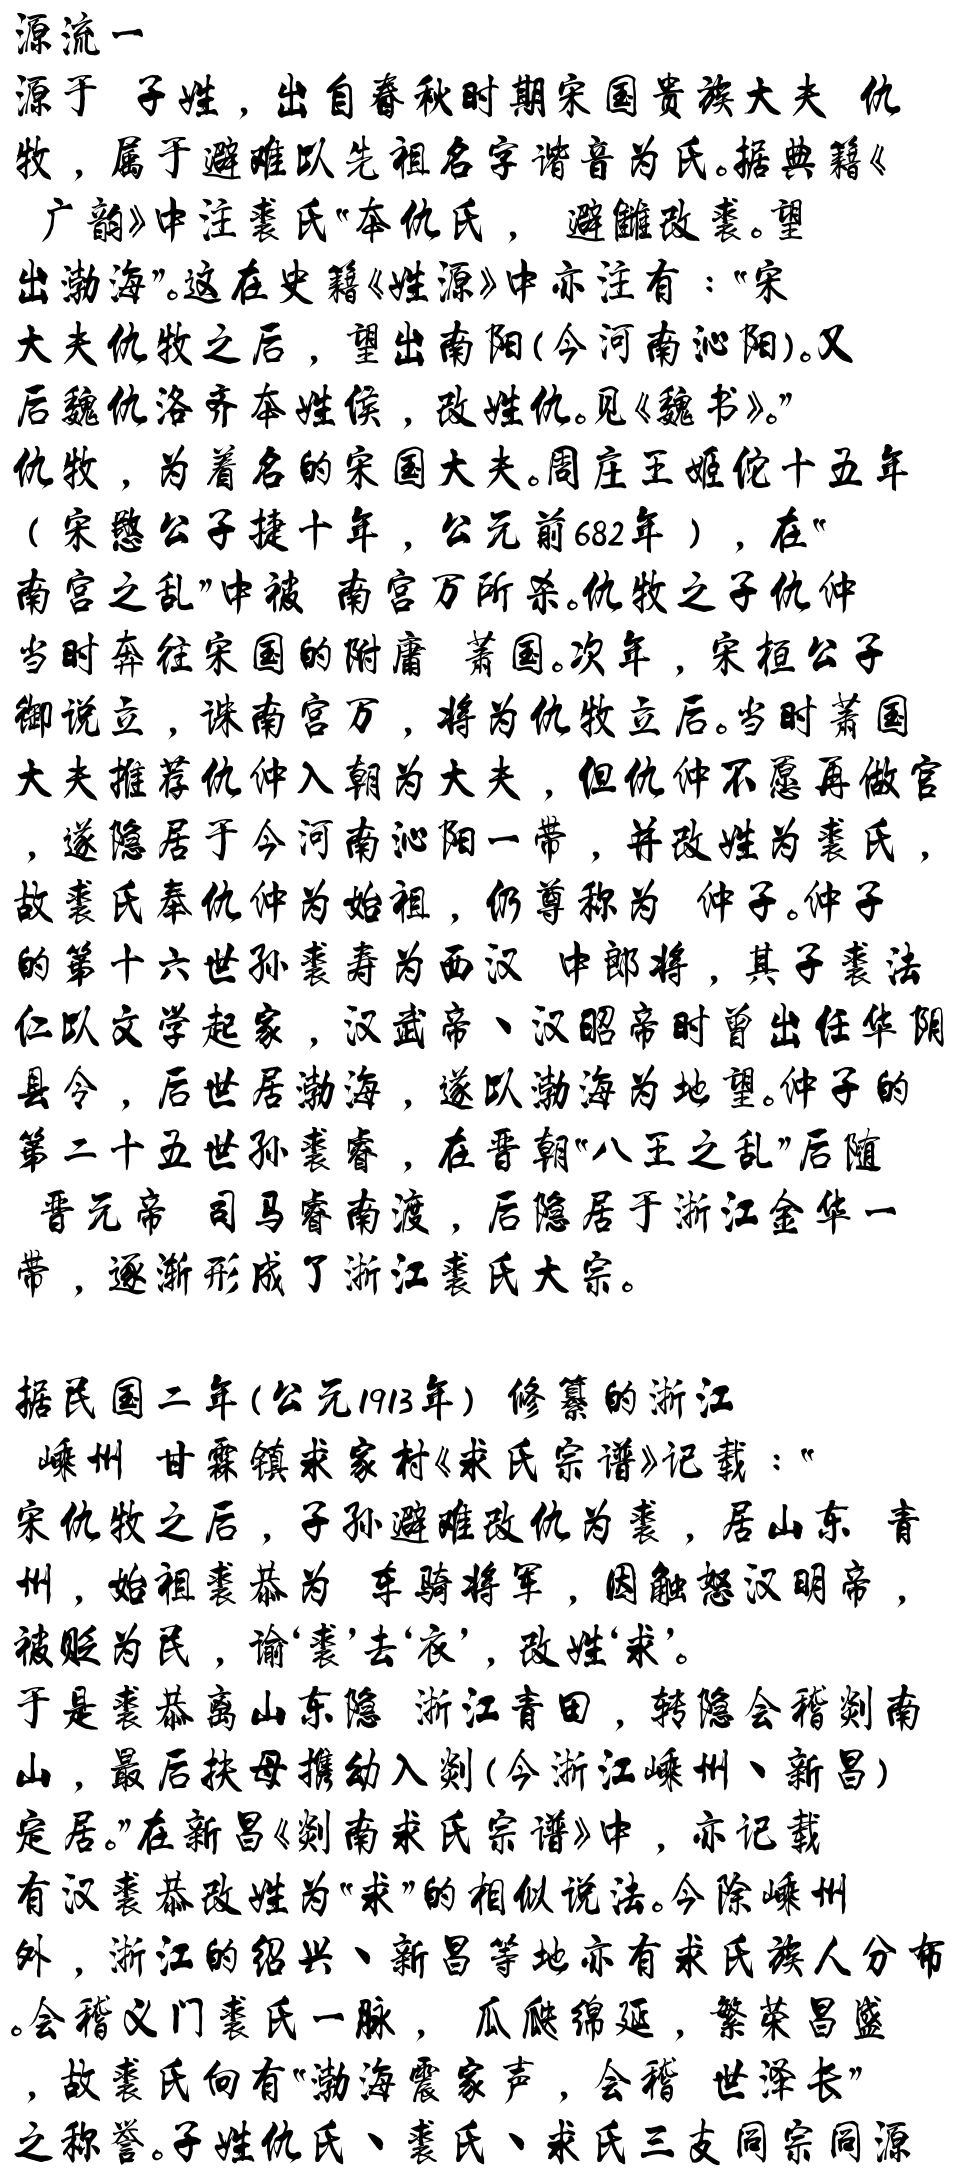 源流一
源于 子姓，出自春秋时期宋国贵族大夫 仇
牧，属于避难以先祖名字谐音为氏。据典籍《
广韵》中注裘氏“本仇氏， 避雠改裘。望
出渤海”。这在史籍《姓源》中亦注有：“宋
大夫仇牧之后，望出南阳(今河南沁阳)。又
后魏仇洛齐本姓侯，改姓仇。见《魏书》。”
仇牧，为着名的宋国大夫。周庄王姬佗十五年
（宋愍公子捷十年，公元前682年），在“
南宫之乱”中被 南宫万所杀。仇牧之子仇仲
当时奔往宋国的附庸 萧国。次年，宋桓公子
御说立，诛南宫万，将为仇牧立后。当时萧国
大夫推荐仇仲入朝为大夫，但仇仲不愿再做官
，遂隐居于今河南沁阳一带，并改姓为裘氏，
故裘氏奉仇仲为始祖，仍尊称为 仲子。仲子
的第十六世孙裘寿为西汉 中郎将，其子裘法
仁以文学起家，汉武帝、汉昭帝时曾出任华阴
县令，后世居渤海，遂以渤海为地望。仲子的
第二十五世孙裘睿，在晋朝“八王之乱”后随
晋元帝 司马睿南渡，后隐居于浙江金华一
带，逐渐形成了浙江裘氏大宗。
据民国二年(公元1913年) 修纂的浙江
嵊州 甘霖镇求家村《求氏宗谱》记载：“
宋仇牧之后，子孙避难改仇为裘，居山东 青
州，始祖裘恭为 车骑将军，因触怒汉明帝，
被贬为民，谕‘裘’去‘衣’，改姓‘求’。
于是裘恭离山东隐 浙江青田，转隐会稽剡南
山，最后扶母携幼入剡(今浙江嵊州、新昌)
定居。”在新昌《剡南求氏宗谱》中，亦记载
有汉裘恭改姓为“求”的相似说法。今除嵊州
外，浙江的绍兴、新昌等地亦有求氏族人分布
。会稽义门裘氏一脉， 瓜瓞绵延，繁荣昌盛
，故裘氏向有“渤海震家声，会稽 世泽长”
之称誉。子姓仇氏、裘氏、求氏三支同宗同源